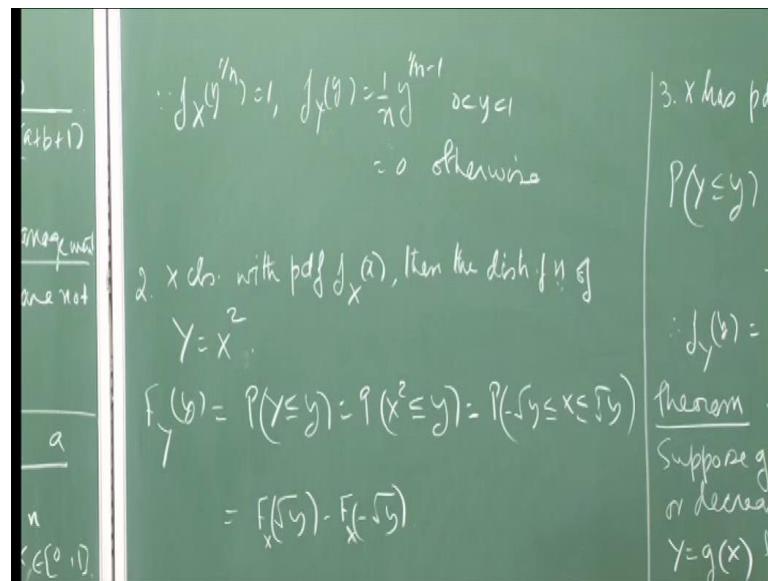 a+b+1)
anagement
are not
a
n
∈[0,1].
∵ f_X(y^{1/n}) = 1, f_Y(y) = 1/n y^{1/n-1} 0<y<1
= 0 otherwise
2. X cts. with pdf f_X(x), then the dist. fn of
Y = X^2.
F_Y(y) = P(Y≤y) = P(X^2≤y) = P(-√y≤X≤√y)
= F_X(√y) - F_X(-√y)
3. X has pd
P(Y≤y)
∴ f_Y(y) =
Theorem
Suppose g
or decrea
Y=g(x)